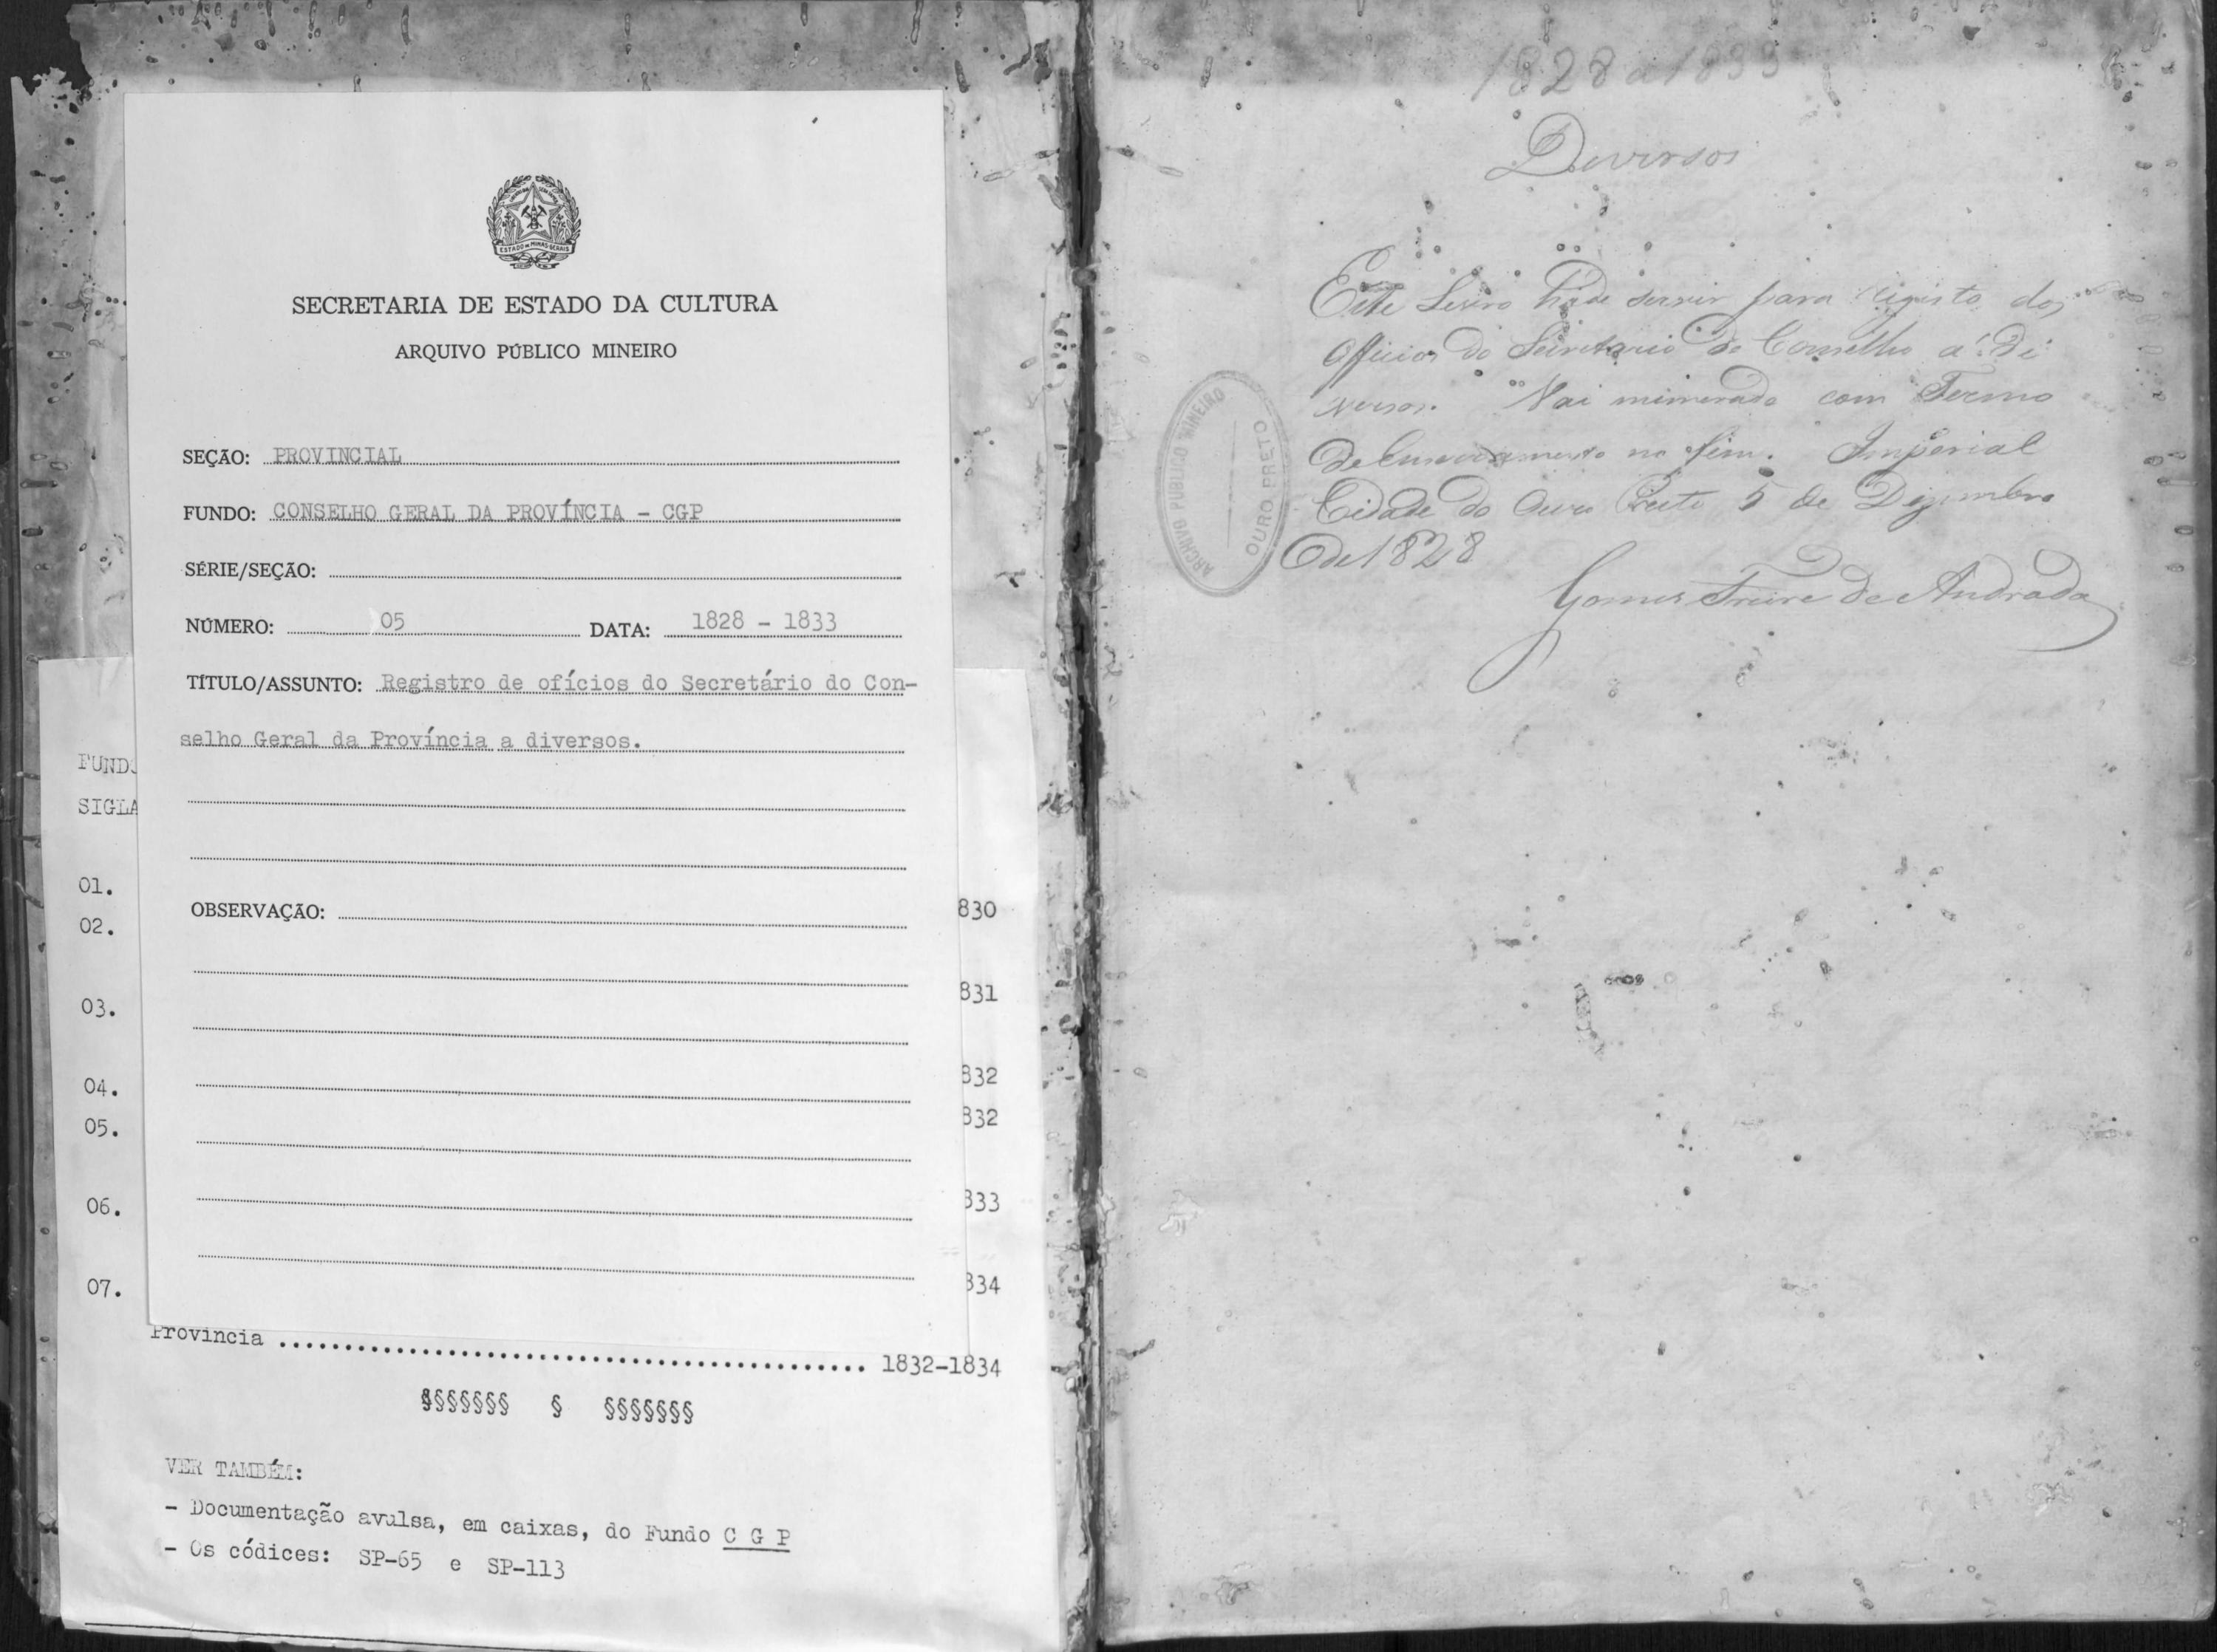 ESTADO DE MINAS GERAIS
SECRETARIA DE ESTADO DA CULTURA
ARQUIVO PÚBLICO MINEIRO
SEÇÃO: PROVINCIAL
FUNDO: CONSELHO GERAL DA PROVÍNCIA - CGP
SÉRIE/SEÇÃO:
NÚMERO: 05 DATA: 1828 - 1833
TÍTULO/ASSUNTO: Registro de ofícios do Secretário do Con-
selho Geral da Província a diversos.
OBSERVAÇÃO:
FUNDO
SIGLA
01.
02. 830
03. 831
04. 832
05. 832
06. 833
07. 834
Província ............................................. 1832-1834
§§§§§§§ § §§§§§§§
VER TAMBÉM:
- Documentação avulsa, em caixas, do Fundo C G P
- Os códices: SP-65 e SP-113
1828 a 1833
Diversos
Este Livro hade servir para registo dos
Officios do Secretario do Conselho a Di
versos. Vai numerado com Termo
de Encerramento no fim. Imperial
Cidade do Ouro Preto 5 de Dezembro
de 1828
Gomes Freire de Andrada
ARCHIVO PUBLICO MINEIRO
OURO PRETO